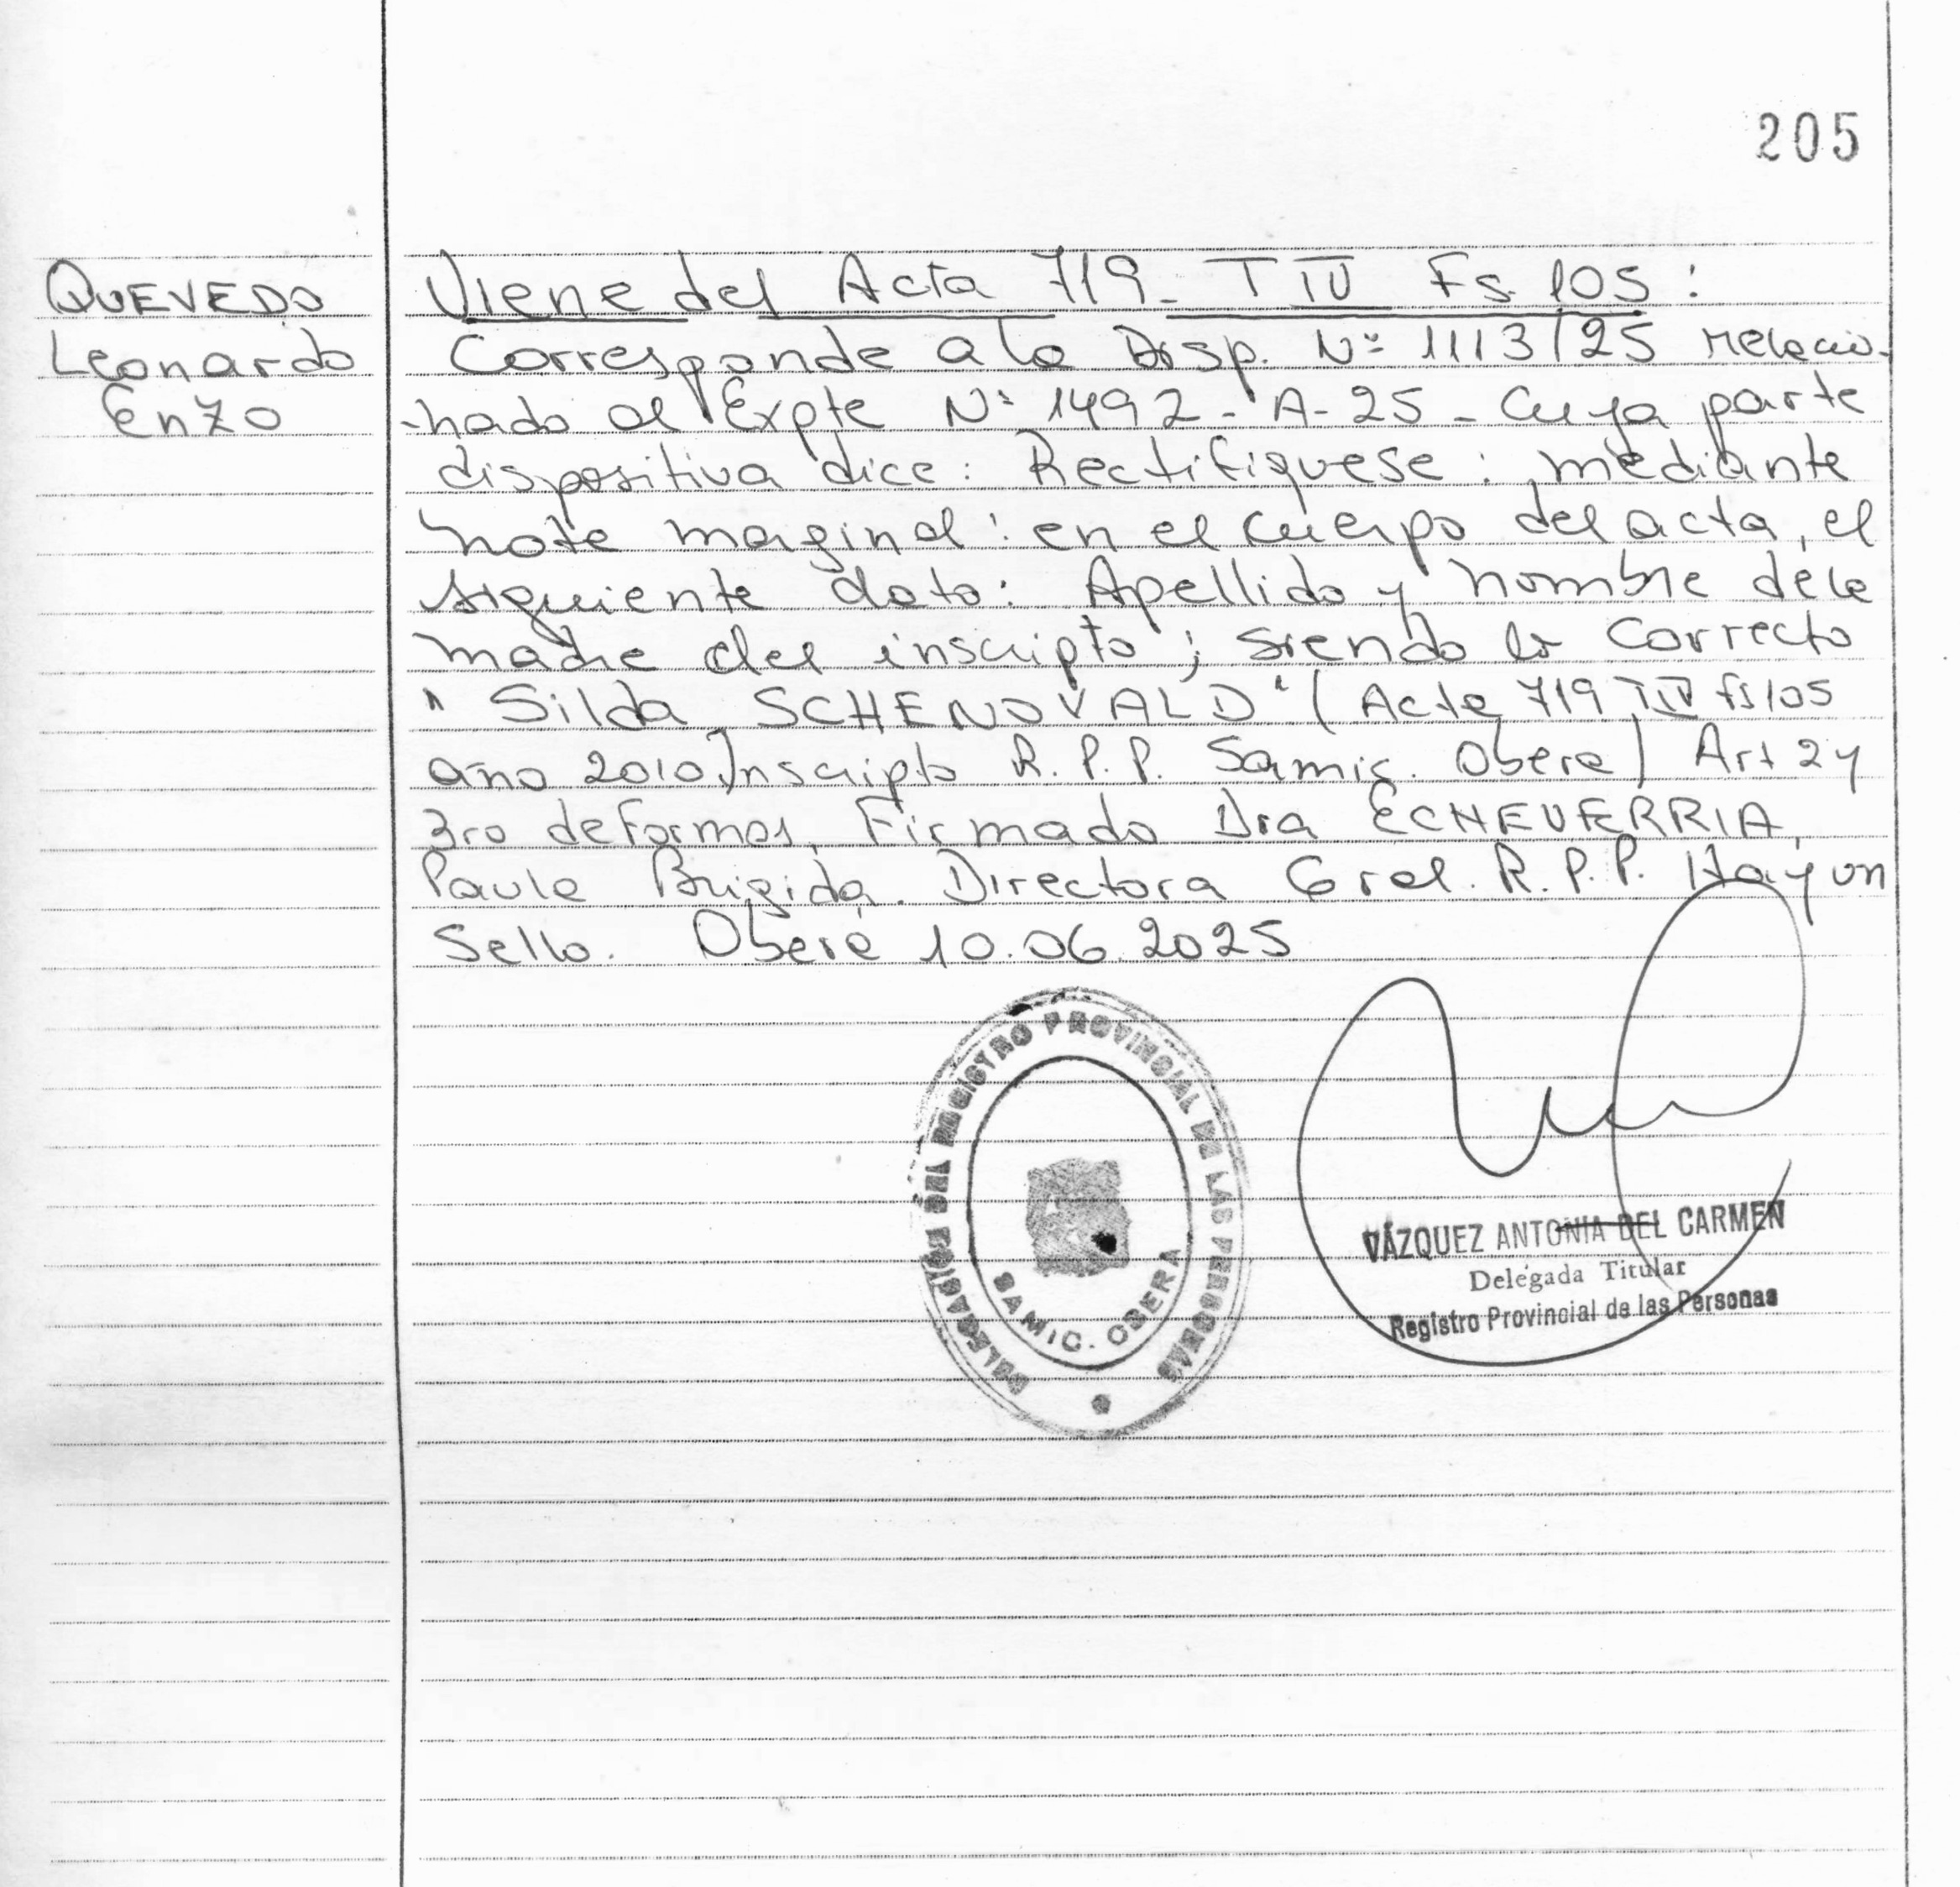 205
QUEVEDO
Leonardo
Enzo
Viene del Acta 719 - T IV Fs. 105 :
Corresponde a la Disp. Nº 1113/25 relacio-
-nado al Expte Nº 1492 - A - 25 - Cuya parte
dispositiva dice: Rectifiquese : mediante
nota marginal : en el cuerpo del acta, el
siguiente dato: Apellido y nombre de la
madre del inscripto ; siendo lo correcto
" Silda SCHENOVALD " ( Acta 719 T IV fs 105
año 2010. Inscripto R. P. P. Samic. Obera ) Art 2 y
3ro de formas, Firmado Dra ECHEVERRIA,
Paula Brigida. Directora Gral. R. P. P. Hay un
Sello. Oberá 10.06.2025
DELEGACIÓN DEL REGISTRO PROVINCIAL DE LAS PERSONAS
SAMIC. OBERA
VÁZQUEZ ANTONIA DEL CARMEN
Delegada Titular
Registro Provincial de las Personas